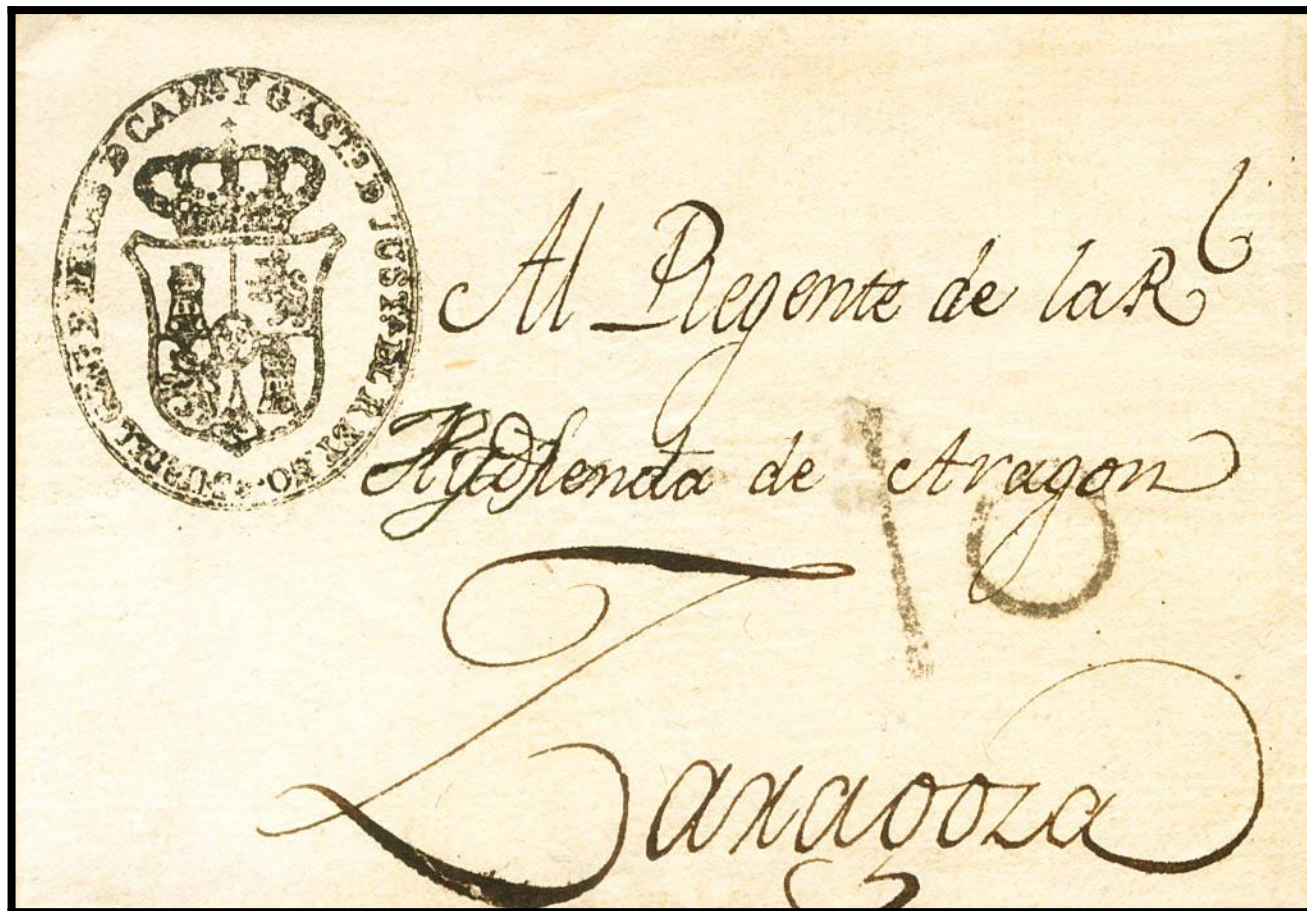 D CAM.ˢ Y GAST.ˢ D JUST.ª DEL REINO
Al Regente de la Rˡ
Audiencia de Aragon
10
Zaragoza